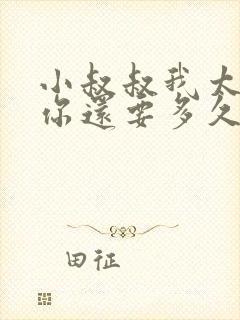 小叔叔我太
你還要多久
田征